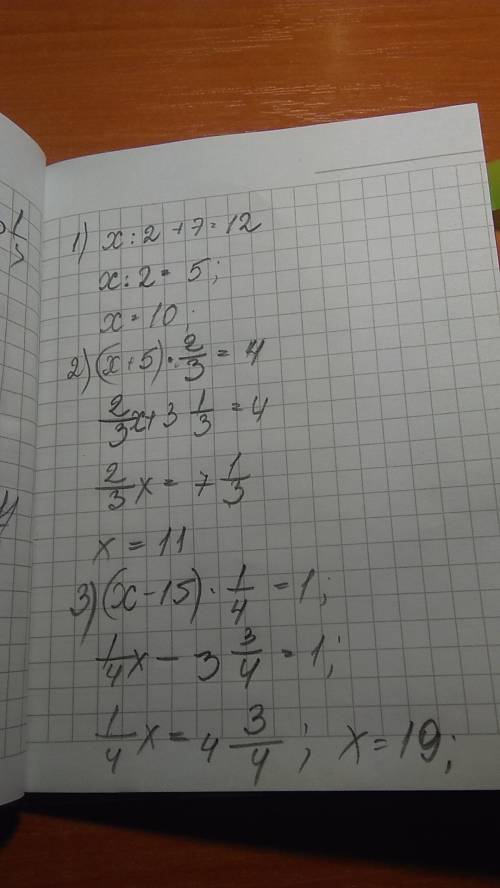 1) x : 2 + 7 = 12
x : 2 = 5;
x = 10;
2) (x + 5) · 2/3 = 4
2/3 x + 3 1/3 = 4
2/3 x = 7 1/3
x = 11
3) (x - 15) · 1/4 = 1;
1/4 x - 3 3/4 = 1;
1/4 x = 4 3/4; x = 19;